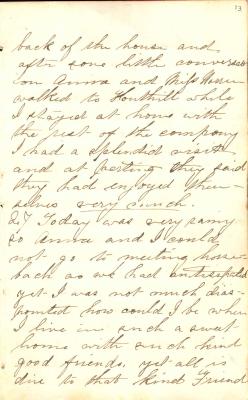 13
back of the house and
after some little conversa
ion Anna and Miss
walked to Fonthill while
I stayed at home with
the rest of the company
I had a splendid visit
and at parting they said
they had enjoyed them-
selves very much.
27 Today was very rainy
so Anna and I could
not go to meeting horse-
back as we had anticipated
yet I was not much disa-
pointed how could I be when
I live in such a sweet
home with such kind
good friends, yet all is
due to that kind Friend